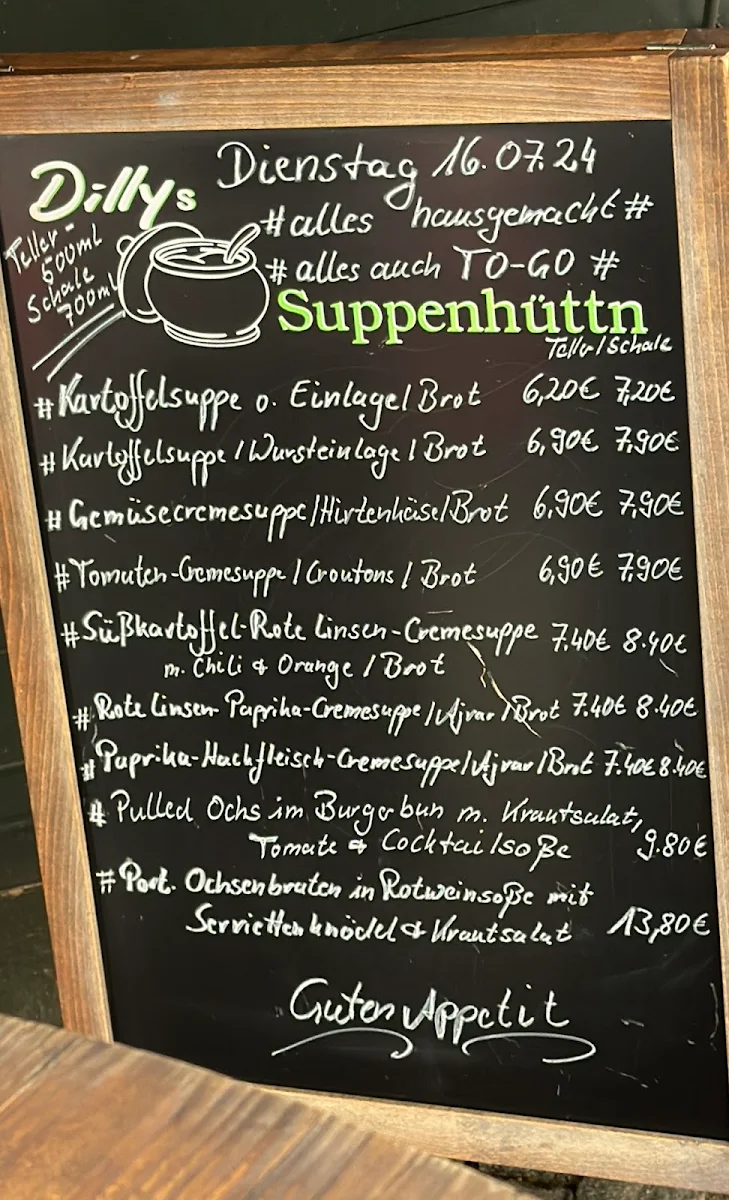 Dillys
Dienstag 16.07.24
#alles hausgemacht#
#alles auch TO-GO #
Teller-
500ml
Schale
700ml
Suppenhüttn
Teller/Schale
#Kartoffelsuppe o. Einlage/Brot 6,20€ 7,20€
#Kartoffelsuppe/Wursteinlage/Brot 6,90€ 7,90€
#Gemüsecremesuppe/Hirtenkäse/Brot 6,90€ 7,90€
#Tomaten-Cremesuppe/Croutons/Brot 6,90€ 7,90€
#Süßkartoffel-Rote Linsen-Cremesuppe 7.40€ 8.40€
m. Chili & Orange/Brot
#Rote Linsen-Paprika-Cremesuppe/Ajvar/Brot 7.40€ 8.40€
#Paprika-Hackfleisch-Cremesuppe/Ajvar/Brot 7.40€ 8.40€
#Pulled Ochs im Burgerbun m. Krautsalat,
Tomate & Cocktailsoße 9.80€
#Port. Ochsenbraten in Rotweinsoße mit
Serviettenknödel & Krautsalat 13,80€
Guten Appetit